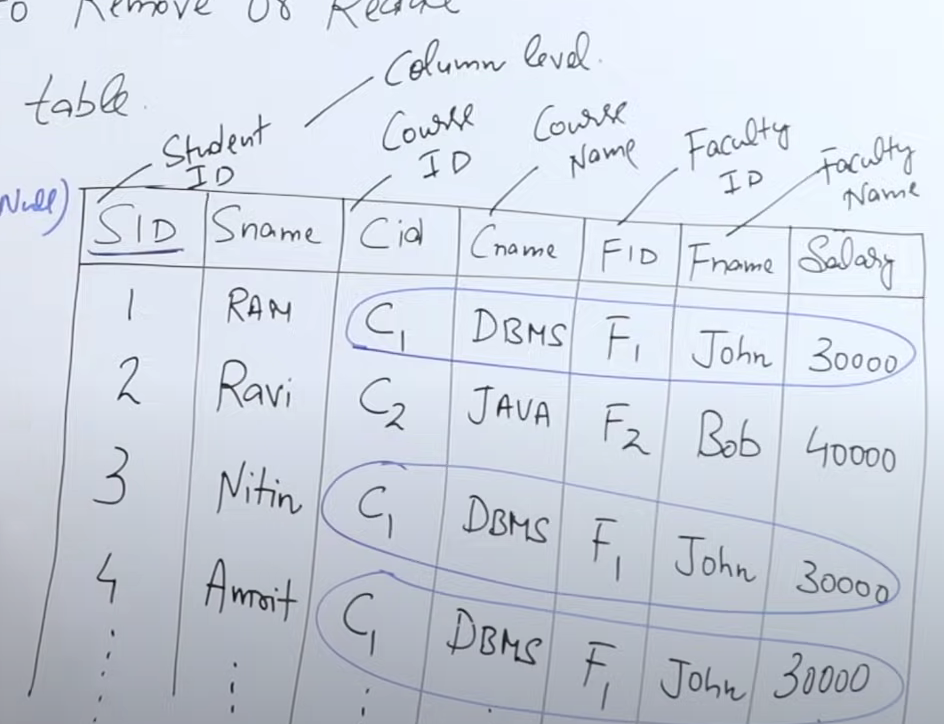 to Remove or Reduce
table.
Column level.
Student ID
Course ID
Course Name
Faculty ID
Faculty Name
Null)
SID Sname Cid Cname FID Fname Salary
1 RAM C1 DBMS F1 John 30000
2 Ravi C2 JAVA F2 Bob 40000
3 Nitin C1 DBMS F1 John 30000
4 Amrit C1 DBMS F1 John 30000